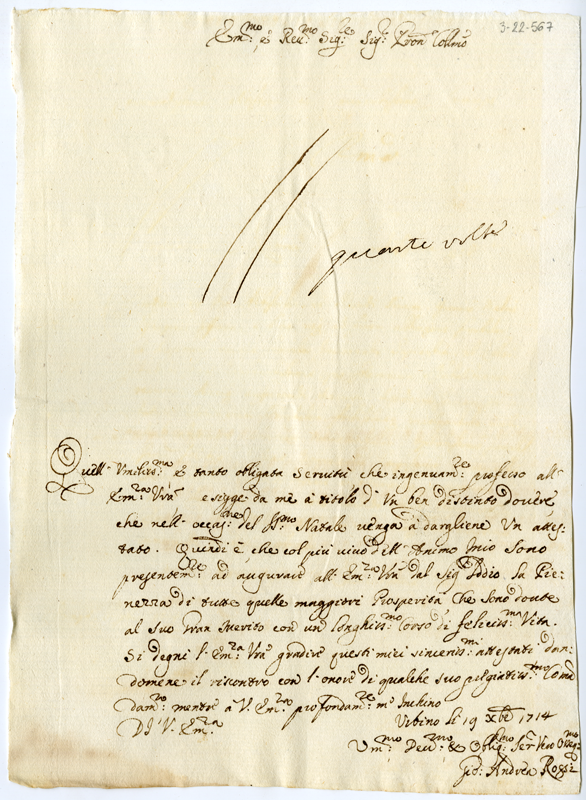 3-22-567
Em.mo e Rev.mo Sig.re Sig.re Pron Collmo
quante volte
Quell' Umiliss.ma e tanto obligata Servitù che ingenuam.te professo all'
Em.za Vra esigge da me à titolo d' Un ben distinto dovere
che nell' occas.ne del SS.mo Natale venga à dargliene Un attes-
tato. Quindi è, che col più vivo dell' Animo Mio sono
presentem.te ad augurare all' Em.za Vra dal Sig. Iddio la Pie-
nezza di tutte quelle maggiori Prosperità, che sono dovute
al Suo Gran Merito con un longhiss.mo Corso di feliciss.ma Vita.
Si degni l' Em.za Vra gradire questi miei sinceriss.mi attestati dan-
domene il riscontro con l' onore di qualche suo pregiatiss.mo Coman
dam.to mentre à V. Em.za profondam.te m' Inchino
DI V. Em.za Urbino li 19 Xbre 1714
Um.mo Dev.mo & Oblig.mo Ser.
Gio: Andrea